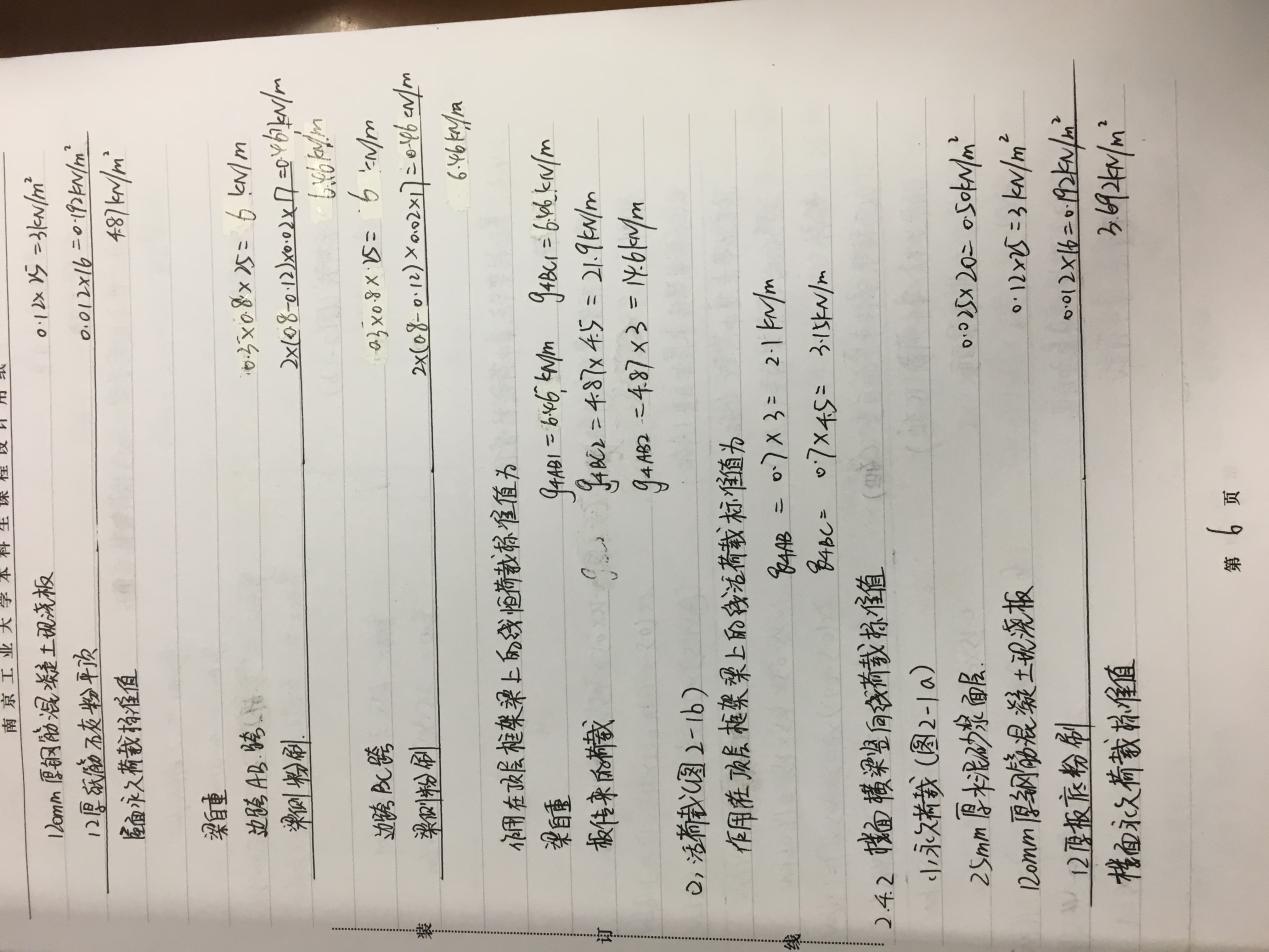 南京工业大学本科生课程设计用纸
120mm厚钢筋混凝土现浇板 0.12×25=3kN/m²
12厚纸筋石灰粉平顶 0.012×16=0.192kN/m²
屋面永久荷载标准值 4.87kN/m²
梁自重
边跨AB跨 0.3×0.8×25=6 kN/m
梁侧粉刷 2×(0.8-0.12)×0.02×17=0.46kN/m
6.46kN/m
边跨BC跨 0.3×0.8×25=6 kN/m
梁侧粉刷 2×(0.8-0.12)×0.02×17=0.46kN/m
6.46kN/m
作用在顶层框架梁上的线恒荷载标准值为
梁自重 g4AB1=6.46kN/m g4BC1=6.46kN/m
板传来的荷载 g4BC2=4.87×4.5=21.9kN/m
g4AB2=4.87×3=14.6kN/m
(2)、活荷载(图2-1b)
作用在顶层框架梁上的线活荷载标准值为
q4AB=0.7×3=2.1kN/m
q4BC=0.7×4.5=3.15kN/m
2.4.2 楼面横梁竖向线荷载标准值
(1)、永久荷载(图2-1a)
25mm厚水泥砂浆面层. 0.025×20=0.50kN/m²
120mm厚钢筋混凝土现浇板 0.12×25=3kN/m²
12厚板底粉刷 0.012×16=0.192kN/m²
楼面永久荷载标准值 3.692kN/m²
第 6 页
装 订 线